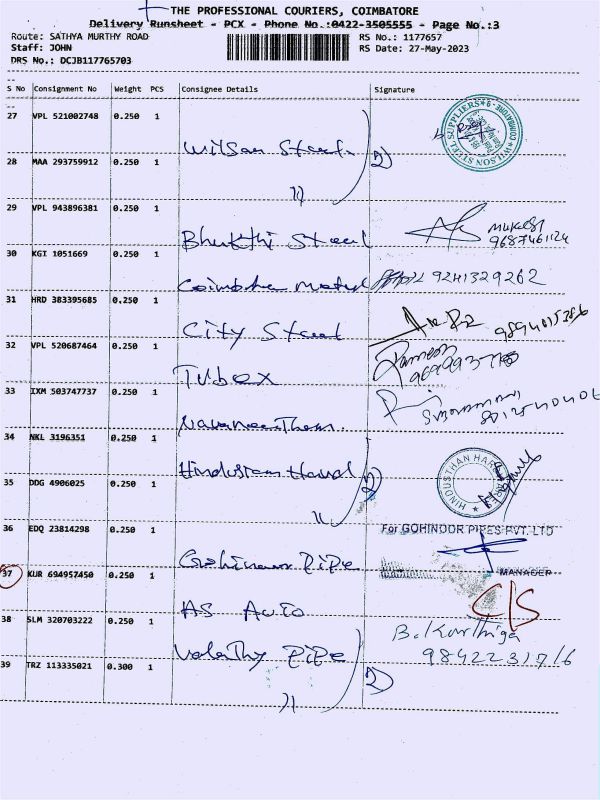 THE PROFESSIONAL COURIERS, COIMBATORE
Delivery Runsheet - PCX - Phone No.:0422-3505555 - Page No.:3
Route: SATHYA MURTHY ROAD RS No.: 1177657
Staff: JOHN RS Date: 27-May-2023
DRS No.: DCJB117765703
S No Consignment No Weight PCS Consignee Details Signature
27 VPL 521002748 0.250 1
WILSON STEEL SUPPLIERS
COIMBATORE-9
Wilson Steel 2)
28 MAA 293759912 0.250 1
11
29 VPL 943896381 0.250 1
Bhukthi Steel
MUKESH
9687461124
30 KGI 1051669 0.250 1
Coimbatore Metal 9241329262
31 HRD 383395685 0.250 1
City Steel
32 VPL 520687464 0.250 1
Tubex
33 IXM 503747737 0.250 1
34 NKL 3196351 0.250 1
Hindustan 2)
HINDUSTHAN
35 DDG 4906025 0.250 1
11
36 EDQ 23814298 0.250 1
For GOHINOOR PIPES PVT. LTD
Gohinoor Pipe
MANAGER
37 KUR 694957450 0.250 1
AS Auto C/S
38 SLM 320703222 0.250 1
B. Karthiga
Pipe
39 TRZ 113335021 0.300 1
11 2)